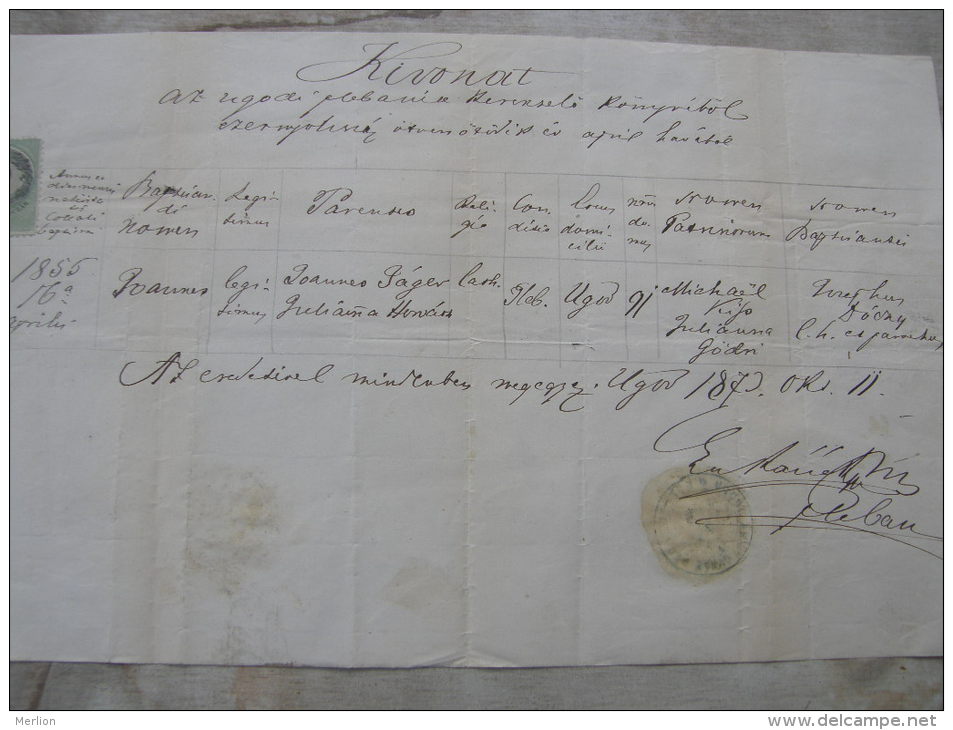 Kivonat
az ugodi plebánia keresztelő könyvéből
ezernyolcszáz ötvenötödik év april havából
Baptisan-
di
Nomen
Legi-
timus
Parentes
Reli-
gio
Con-
ditio
Locus
domi-
cilii
Nrus
do-
mus
Nomen
Patrinorum
Nomen
Baptisantis
1855
16a
Aprilis
Joannes
legi-
timus
Joannes Jáger
Julianna Horváth
cath.
Pleb.
Ugod
91
Michaël
Julianna
Gödri
Josephus
Az eredetivel mindenben megegyez. Ugod 1873. Okt. 11.
pleban
Merlion
www.delcampe.net